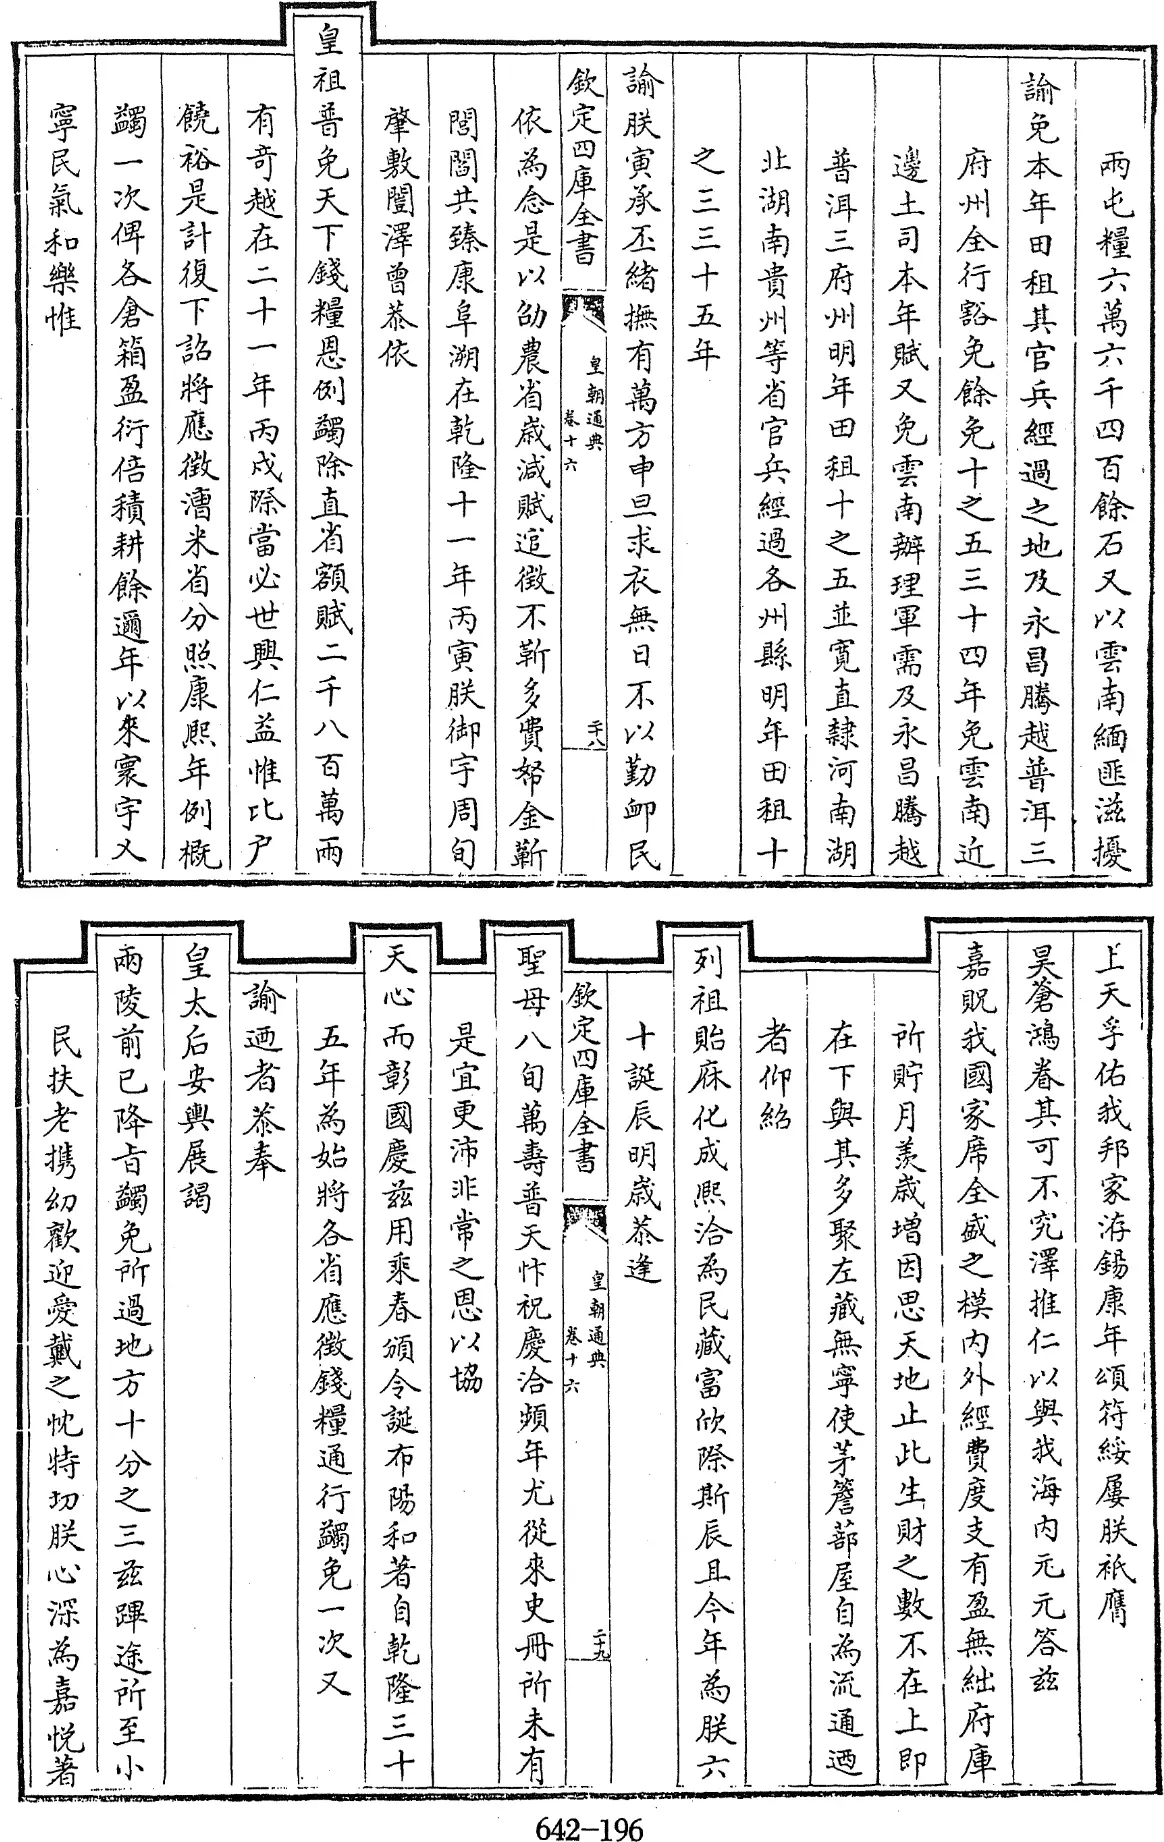 兩屯糧六萬六千四百餘石又以雲南緬匪滋擾
諭免本年田租其官兵經過之地及永昌騰越普洱三
府州全行豁免餘免十之五三十四年免雲南近
邊土司本年賦又免雲南辦理軍需及永昌騰越
普洱三府州明年田租十之五並寬直隸河南湖
北湖南貴州等省官兵經過各州縣明年田租十
之三三十五年
諭朕寅承丕緒撫有萬方申旦求衣無日不以勤卹民
欽定四庫全書
皇朝通典
卷十六
二十八
依為念是以劭農省歲減賦逭徵不靳多費帑金蘄
閭閻共臻康阜溯在乾隆十一年丙寅朕御宇周旬
肇敷闓澤曾恭依
皇祖普免天下錢糧恩例蠲除直省額賦二千八百萬兩
有奇越在二十一年丙戌際當必世興仁益惟比户
饒裕是計復下詔將應徵漕米省分照康熙年例概
蠲一次俾各倉箱盈衍倍積耕餘邇年以來寰宇乂
寧民氣和樂惟
上天孚佑我邦家洊錫康年頌符綏屢朕祇膺
昊蒼鴻眷其可不究澤推仁以與我海内元元答兹
嘉貺我國家席全盛之模内外經費度支有盈無絀府庫
所貯月羨歲增因思天地止此生財之數不在上即
在下與其多聚左藏無寧使茅簷蔀屋自為流通迺
者仰紹
列祖貽庥化成熙洽為民藏富欣際斯辰且今年為朕六
十誕辰明歲恭逢
欽定四庫全書
皇朝通典
卷十六
二十九
聖母八旬萬壽普天忭祝慶洽頻年尤從來史冊所未有
是宜更沛非常之恩以協
天心而彰國慶兹用乘春頒令誕布陽和著自乾隆三十
五年為始將各省應徵錢糧通行蠲免一次又
諭迺者恭奉
皇太后安輿展謁
兩陵前已降旨蠲免所過地方十分之三兹蹕途所至小
民扶老携幼歡迎愛戴之忱特切朕心深為嘉悦著
642-196